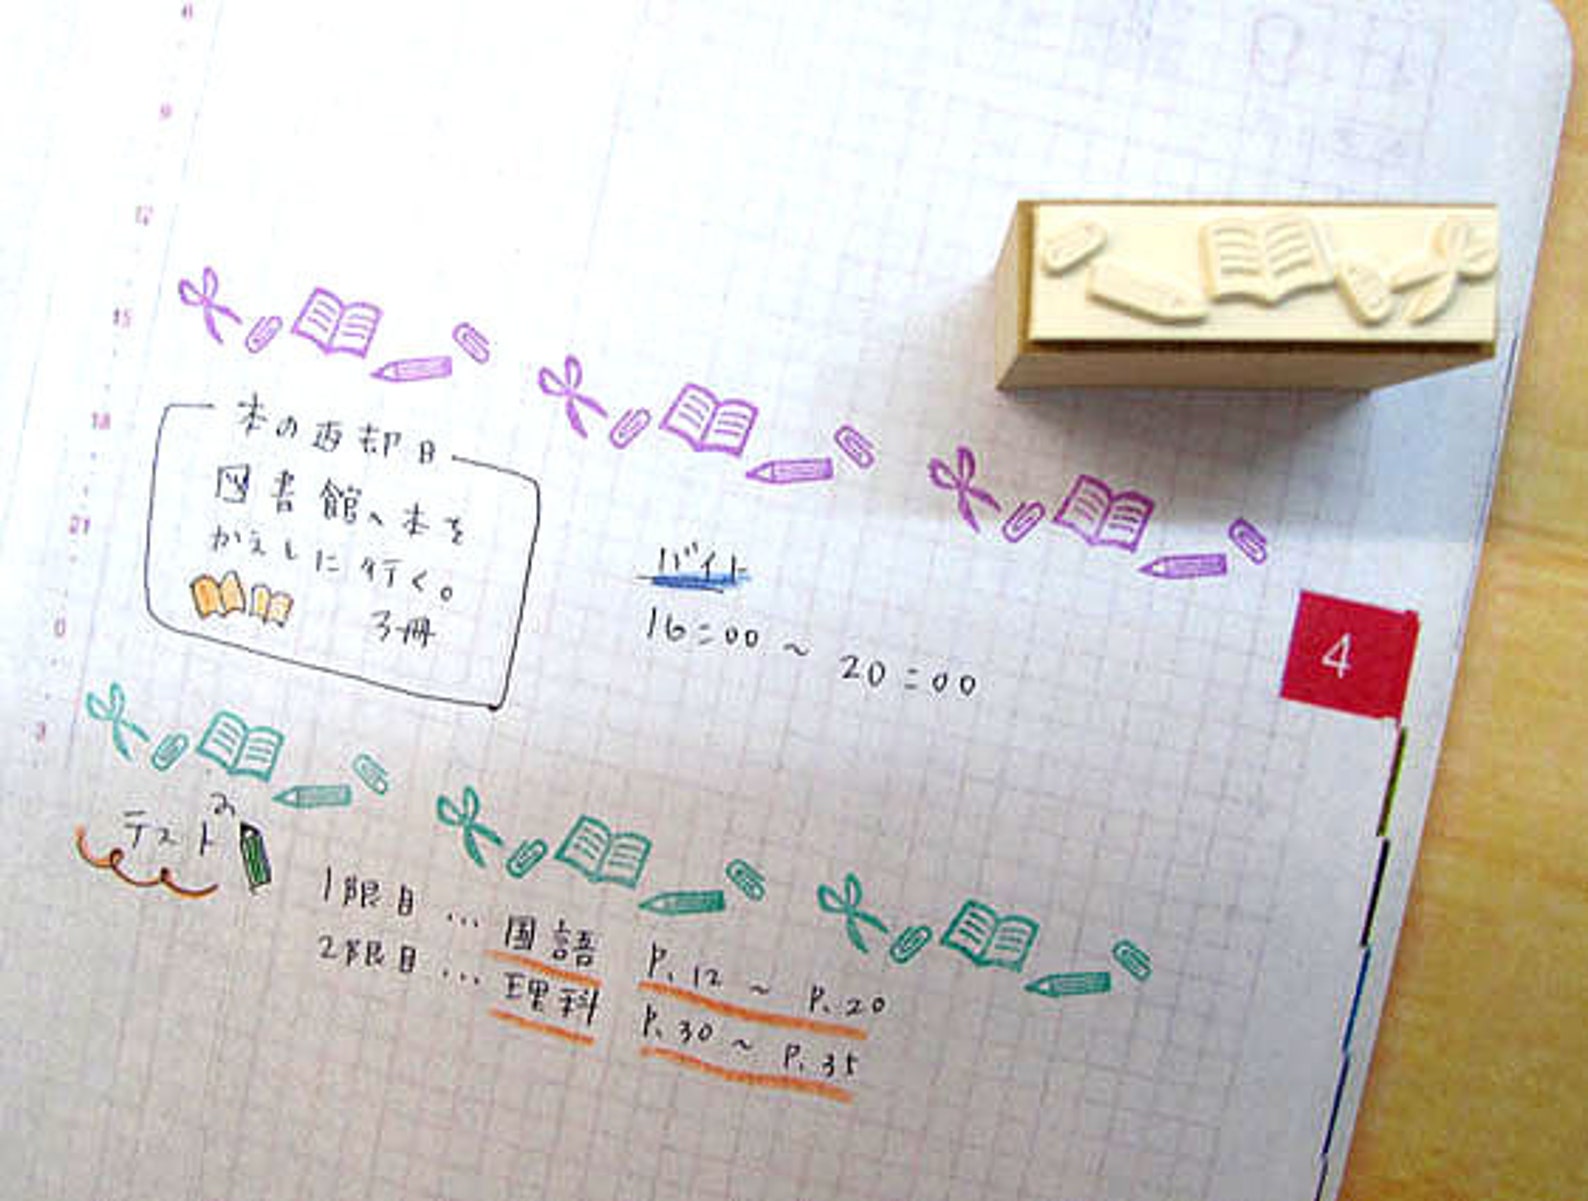 6
9
12
15
18
21
0
3
本の返却日
図書館へ本を
かえしに行く。
3冊
バイト
16:00 ~ 20:00
4
テスト
1限目 … 国語 P.12 ~ P.20
2限目 … 理科 P.30 ~ P.35